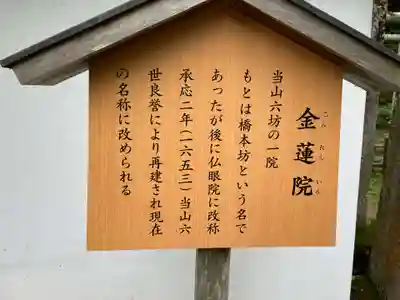 金蓮院
こんれんいん
当山六坊の一院
もとは橋本坊という名で
あったが後に仏眼院に改称
承応二年(一六五三)当山六
世良誉により再建され現在
の名称に改められる